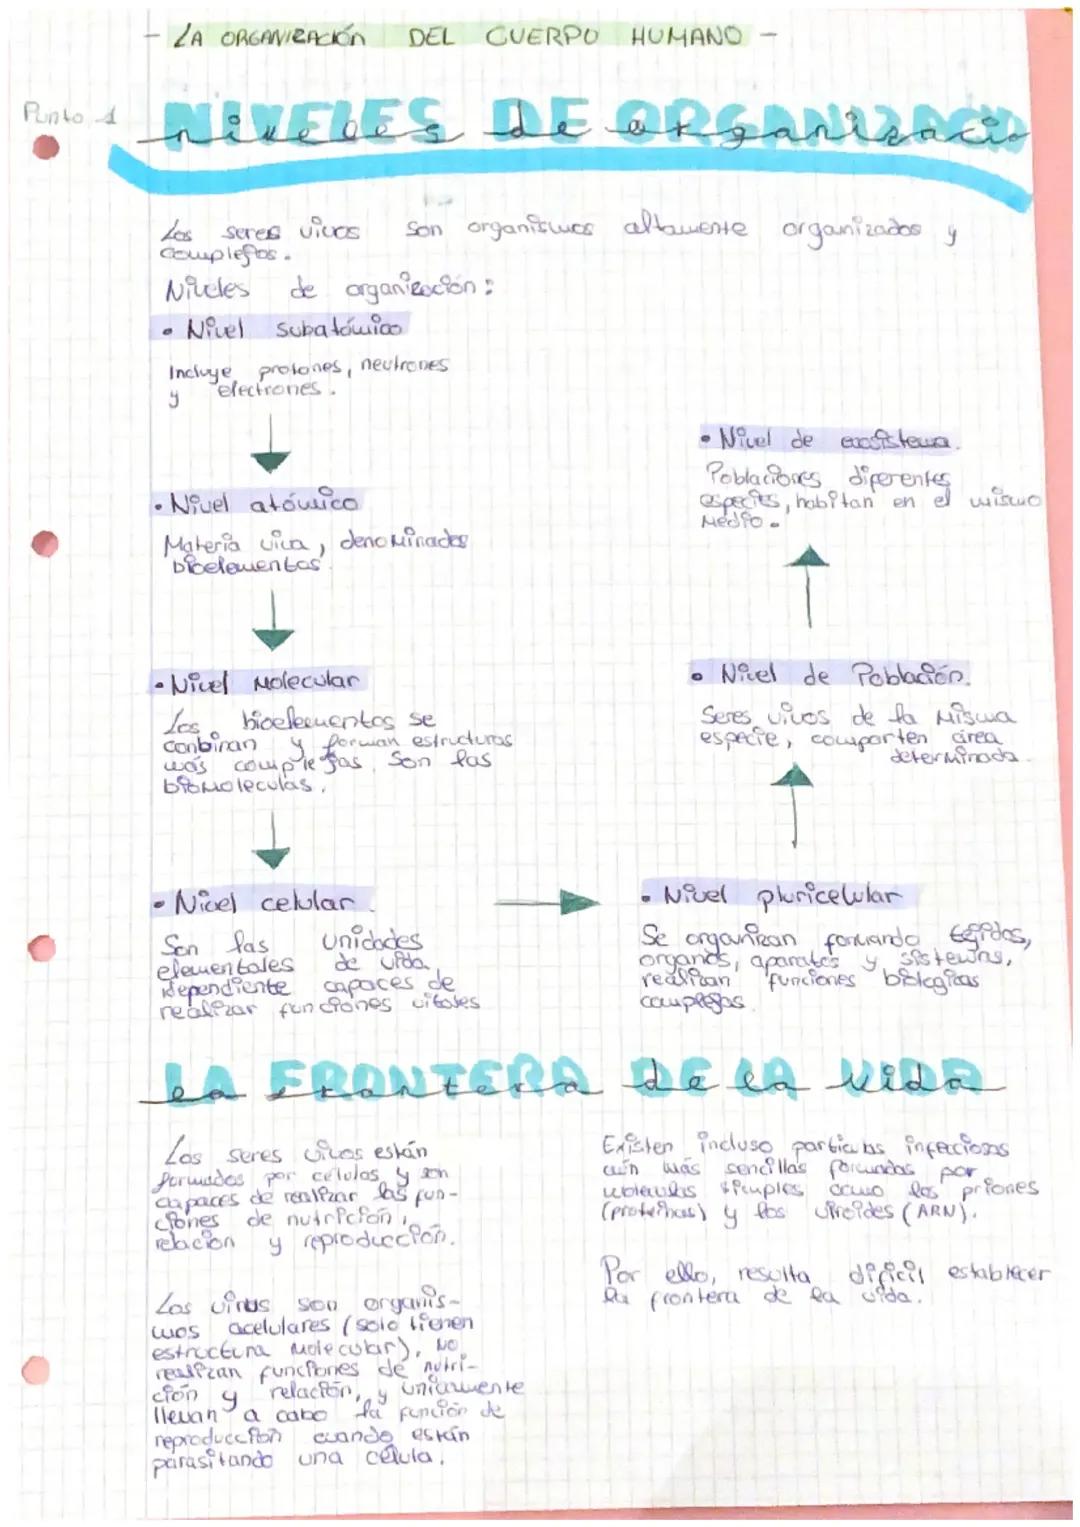 - LA ORGANIZACIÓN DEL CUERPO HUMANO -
Punto 1
NIVELES DE ORGANIZACIO
niveles de organizacio
Los seres vivos son organismos altamente organizados y
complejos.
Niveles de organización:
• Nivel subatómico
Incluye protones, neutrones
y electrones.
• Nivel atómico
Materia viva, denominados
bioelementos.
• Nivel Molecular
Los bioelementos se
conbinan y forman estructuras
más complejas. Son las
biomoleculas.
• Nivel celular.
Son las unidades
elementales de vida
independiente capaces de
realizar funciones vitales
• Nivel pluricelular
Se organizan formando tejidos,
organos, aparatos y sistemas,
realizan funciones biologicas
complejas.
• Nivel de Población.
Seres vivos de la misma
especie, comparten área
determinada.
• Nivel de ecosistema.
Poblaciones diferentes
especies, habitan en el mismo
Medio.
LA FRONTERA DE LA VIDA
la frontera de la vida
Los seres vivos están
formados por celulas y son
capaces de realizar las fun-
ciones de nutrición,
relación y reproducción.
Los virus son organis-
mos acelulares (solo tienen
estructura Molecular), No
realizan funciones de nutri-
ción y relación, y unicamente
llevan a cabo la función de
reproducción cuando están
parasitando una célula.
Existen incluso particulas infecciosas
aún más sencillas formadas por
moleculas simples como los priones
(proteínas) y los viroides (ARN).
Por ello, resulta dificil establecer
la frontera de la vida.